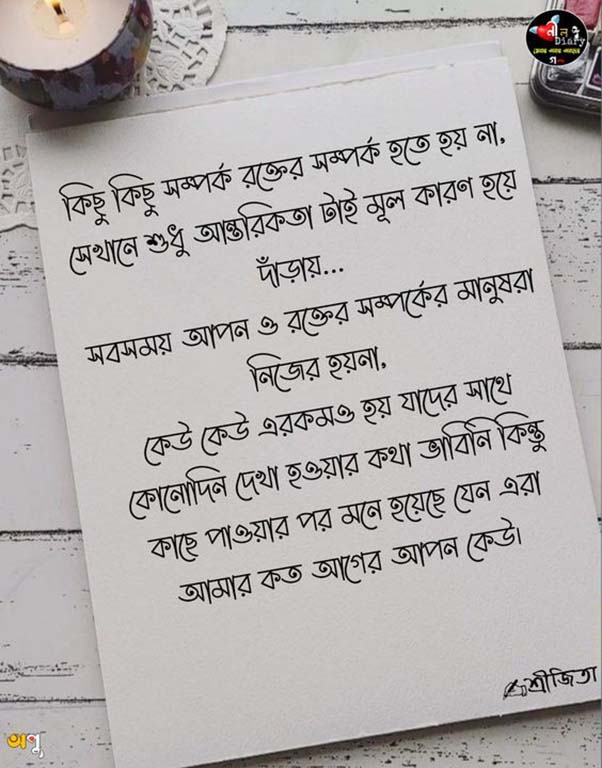 নীল
Diary
কিছু কিছু সম্পর্ক রক্তের সম্পর্ক হতে হয় না,
সেখানে শুধু আন্তরিকতা টাই মূল কারণ হয়ে
দাঁড়ায়...
সবসময় আপন ও রক্তের সম্পর্কের মানুষরা
নিজের হয়না,
কেউ কেউ এরকমও হয় যাদের সাথে
কোনোদিন দেখা হওয়ার কথা ভাবিনি কিন্তু
কাছে পাওয়ার পর মনে হয়েছে যেন এরা
আমার কত আগের আপন কেউ।
শ্রীজিতা
অপু